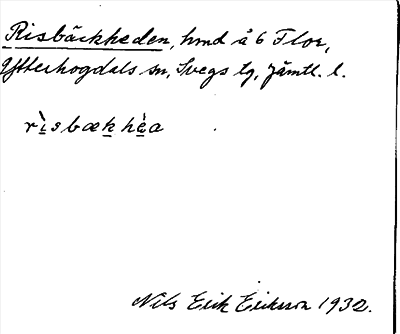 Risbäckheden, hmd å 6 Flor,
Ytterhogdals sn, Svegs tg, Jämtl. l.
rìsbækhèa
Nils Erik Eriksson 1932.